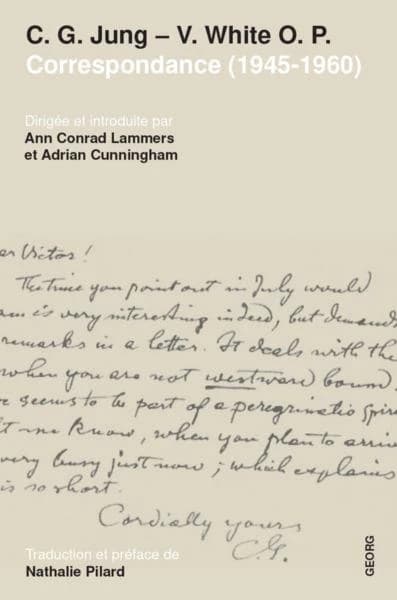 C. G. Jung – V. White O. P.
Correspondance (1945-1960)
Dirigée et introduite par
Ann Conrad Lammers
et Adrian Cunningham
ear Victor!
The time you point out in July would
am is very interesting indeed, but demands
remarks in a letter. It deals with the
when you are not westward bound.
e seems to be part of a peregrinatio spiri
t me know, when you plan to arriv
very busy just now; which explains
is so short.
Cordially yours
C.G.
Traduction et préface de
Nathalie Pilard
GEORG